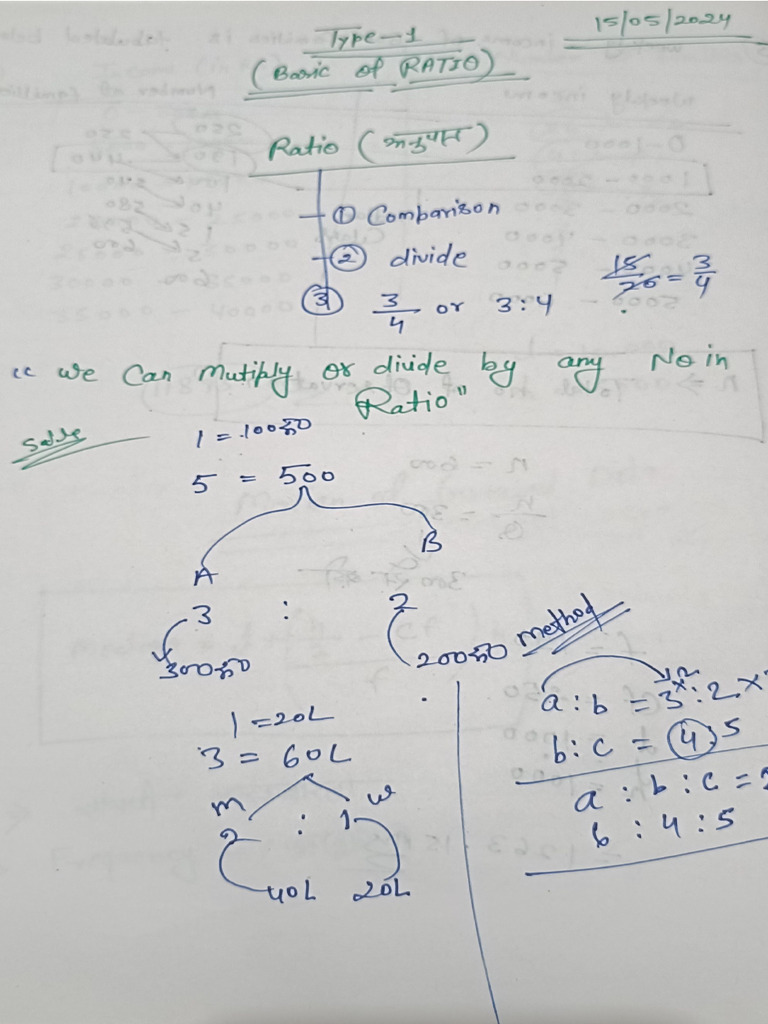 15/05/2024
Type-1
(Basic of RATIO)
Ratio (अनुपात)
① Comparison
② divide
③ 3/4 or 3:4
15/20 = 3/4
"We Can Mutiply or divide by any No in
Ratio"
1 = 100रु0
5 = 500
A B
3 : 2
300रु0 200रु0
1 = 20L
3 = 60L
m w
2 : 1
40L 20L
method
a : b = 3×2 : 2×
b : c = 4 : 5
a : b : c =
6 : 4 : 5